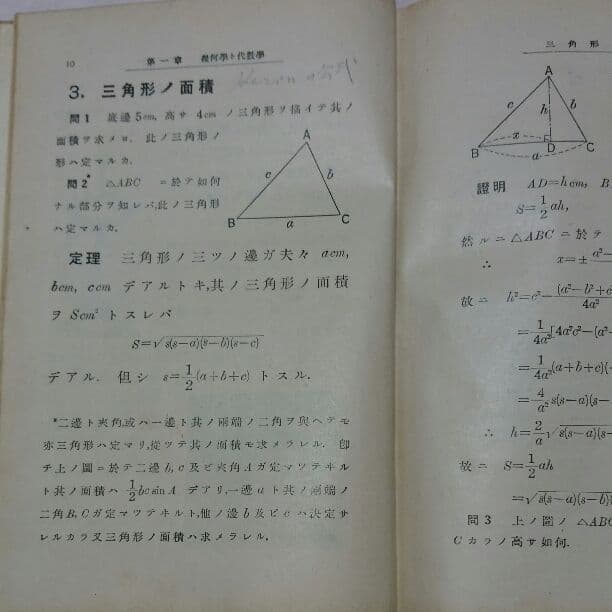 10
第一章 幾何學ト代數學
3. 三角形ノ面積
問1 底邊5cm, 高サ 4cm ノ三角形ヲ描イテ其ノ
面積ヲ求メヨ. 此ノ三角形ノ
形ハ定マルカ.
問2* △ABC ニ於テ如何
ナル部分ヲ知レバ,此ノ三角形
ハ定マルカ.
A
c
b
B
a
C
定理 三角形ノ三ツノ邊ガ夫々 acm,
bcm, ccm デアルトキ,其ノ三角形ノ面積
ヲ Scm² トスレバ
S=√s(s−a)(s−b)(s−c)
デアル. 但シ s=1/2(a+b+c) トスル.
*二邊ト夾角,或ハ一邊ト其ノ兩端ノ二角ヲ與ヘテモ
亦三角形ハ定マリ,從ツテ其ノ面積モ求メラレル. 卽
チ上ノ圖ニ於テ二邊 b, c 及ビ夾角 A ガ定マツテキル
ト其ノ面積ハ 1/2 bc sin A デアリ,一邊 a ト其ノ兩端ノ
二角 B, C ガ定マツテキルト,他ノ邊 b 及ビ c ハ決定サ
レルカラ又三角形ノ面積ハ求メラレル.
三角形
A
c
h
b
x
B
D
C
a
證明 AD=hcm, B
S=1/2 ah,
然ルニ △ABC ニ於テ
∴ x=±
故ニ h²=c²−
=1/4a²
=1/4a²(a+b+c)(
=4/a² s(s−a)(s−
∴ h=2/a √s(s−a)(s−
故ニ S=1/2 ah
=√s(s−a)(s−b)(
問3 上ノ圖ノ △ABC
C カラノ高サ如何.